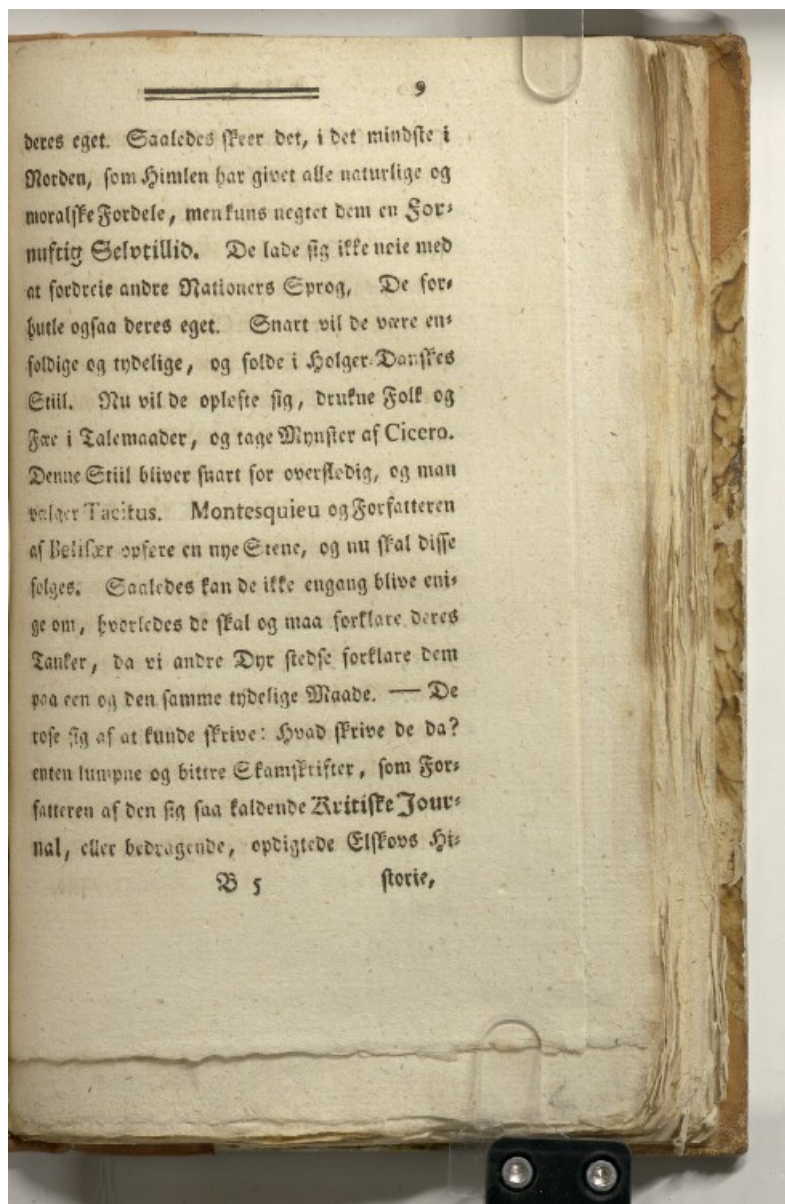 9
deres eget. Saaledes skeer det, i det mindste i
Norden, som Himlen har givet alle naturlige og
moralske Fordele, men kuns negtet dem en For⸗
nuftig Selvtillid. De lade sig ikke nøie med
at fordreie andre Nationers Sprog, De for⸗
hutle ogsaa deres eget. Snart vil de være en⸗
foldige og tydelige, og folde i Holger Danskes
Stiil. Nu vil de opløfte sig, drukne Folk og
Fæe i Talemaader, og tage Mynster af Cicero.
Denne Stiil bliver snart for overflødig, og man
vælger Tacitus. Montesquieu og Forfatteren
af Belisær opføre en nye Stene, og nu skal disse
følges. Saaledes kan de ikke engang blive eni⸗
ge om, hvorledes de skal og maa forklare deres
Tanker, da vi andre Dyr stedse forklare dem
paa een og den samme tydelige Maade. — De
rose sig af at kunde skrive: Hvad skrive de da?
enten lumpne og bittre Skamskrifter, som For⸗
fatteren af den sig saa kaldende Kritiske Jour⸗
nal, eller bedragende, opdigtede Elskovs Hi⸗
B 5 storie,